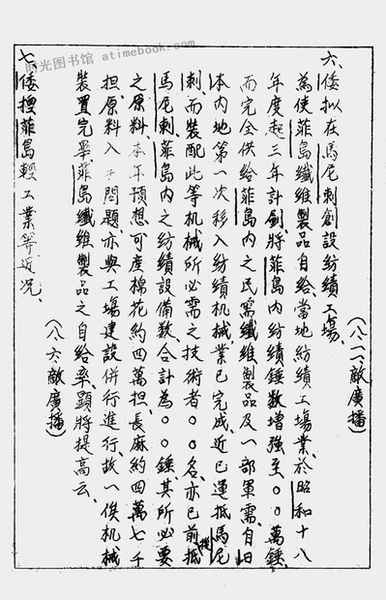 时光图书馆 atimebook.com
六、倭拟在馬尼剌創設紡績工場、
(八、二、敵廣播)
為使菲島纖維製品自給、當地紡績工場業、於昭和十八
年度起三年計劃、將菲島内紡績錘数增強至〇〇萬錘、
而完全供给菲島内之民需纖維製品及一部軍需、自日
本内地第一次移入紡績机械、業已完成、近已運抵馬尼
剌、而裝配此等机械所必需之技術者〇〇名、亦已前抵
馬尼剌、菲島内之紡績設備数、合計為〇〇錘、其所必要
之原料、本年預想可產棉花約四萬担、長麻約四萬七千
担、原料入手問題亦與工場建設併行進行、抵一俟机械
裝置完畢、菲島纖維製品之自给率、顯將提高云、
(八、六、敵廣播)
七、倭搜菲島輕工業等近况、